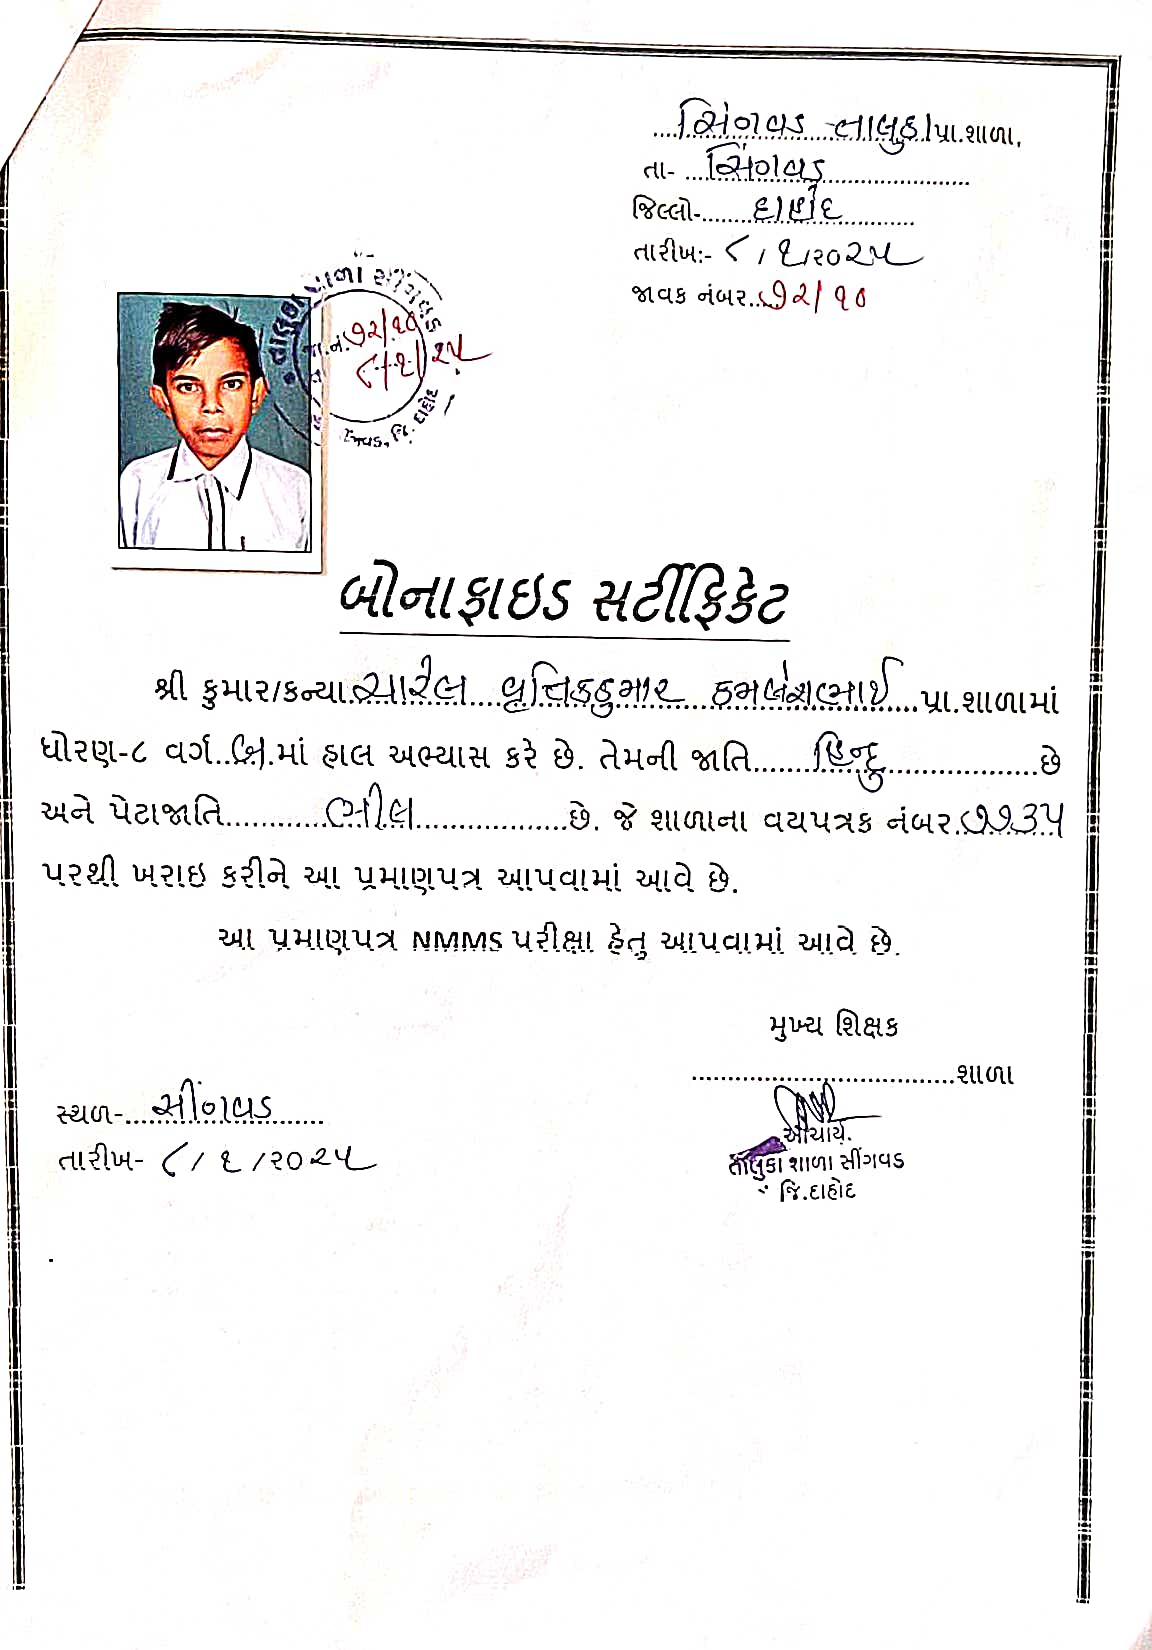 સિંગવડ તાલુકા પ્રા.શાળા,
તા- સિંગવડ
જિલ્લો- દાહોદ
તારીખ:- ૮/૧/૨૦૨૫
જાવક નંબર. ૭૨/૧૦
જા.નં. ૭૨/૧૦
૮/૧/૨૫
જિ. દાહોદ
બોનાફાઇડ સર્ટીફિકેટ
શ્રી કુમાર/કન્યા કમલેશભાઈ પ્રા.શાળામાં
ધોરણ-૮ વર્ગ માં હાલ અભ્યાસ કરે છે. તેમની જાતિ હિન્દુ છે
અને પેટાજાતિ ભીલ છે. જે શાળાના વયપત્રક નંબર. ૭૭૩૫
પરથી ખરાઇ કરીને આ પ્રમાણપત્ર આપવામાં આવે છે.
આ પ્રમાણપત્ર NMMS પરીક્ષા હેતુ આપવામાં આવે છે.
મુખ્ય શિક્ષક
શાળા
સ્થળ- સીંગવડ
તારીખ- ૮/૧/૨૦૨૫
આચાર્ય.
તાલુકા શાળા સીંગવડ
જિ.દાહોદ